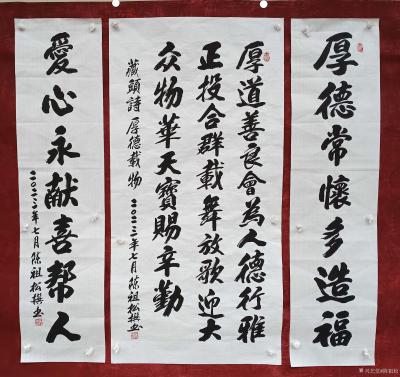 厚德常懷多造福
厚道善良會為人德行雅
正投合群載舞放歌迎大
众物華天寶賜辛勤
藏頭詩 厚德載物 二〇二三年七月陈祖松撰书
愛心永献喜帮人
二〇二三年七月陈祖松撰书